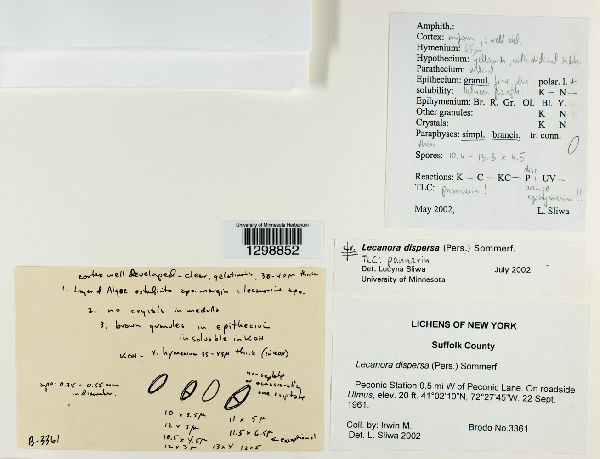 Amphith.:
Cortex: , : well del.
Hymenium: 65µ
Hypothecium:
Parathecium:
Epithecium: granul. polar. I.
solubility: between paraph. K – N –
Epihymenium: Br. R. Gr. Ol. Bl. Y.
Other granules: K N
Crystals: K N
Paraphyses: simpl. branch. tr. conn.
Spores: 10.4 – 13.3 x 4.5
Reactions: K – C – KC – P + UV –
TLC: pannarin! orange epihymenium!!
May 2002, L. Sliwa
University of Minnesota Herbarium
1298852
Lecanora dispersa (Pers.) Sommerf.
TLC: pannarin
Det. Lucyna Sliwa July 2002
University of Minnesota
LICHENS OF NEW YORK
Suffolk County
Lecanora dispersa (Pers.) Sommerf
Peconic Station 0.5 mi W of Peconic Lane. On roadside
Ulmus, elev. 20 ft, 41°02'10"N, 72°27'45"W. 22 Sept.
1961.
Coll. by: Irwin M. Brodo No:3361
Det. L. Sliwa 2002
cortex well developed – clear, gelatinous, 30-40µ thick
1. Layer of Algae apo. margin lecanorine apo.
2. no crystals in medulla
3. brown granules in epithecium
insoluble in KOH
KOH – hymenium 35-45µ thick (in KOH)
apo. 0.35 – 0.55 mm
in diameter.
non-septate
or occasionally
one septate
10 x 5.5µ
12 x 5µ
10.5 x 4.5µ
12 x 3.5
11 x 5µ
11.5 x 6.5µ
13 x 4 12 x 5
B-3361